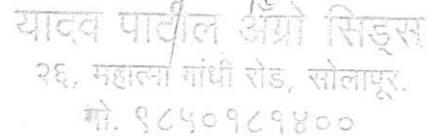 यादव पाटील ॲग्रो सिड्स
२६, महात्मा गांधी रोड, सोलापूर.
मो. ९८५०१८१४००